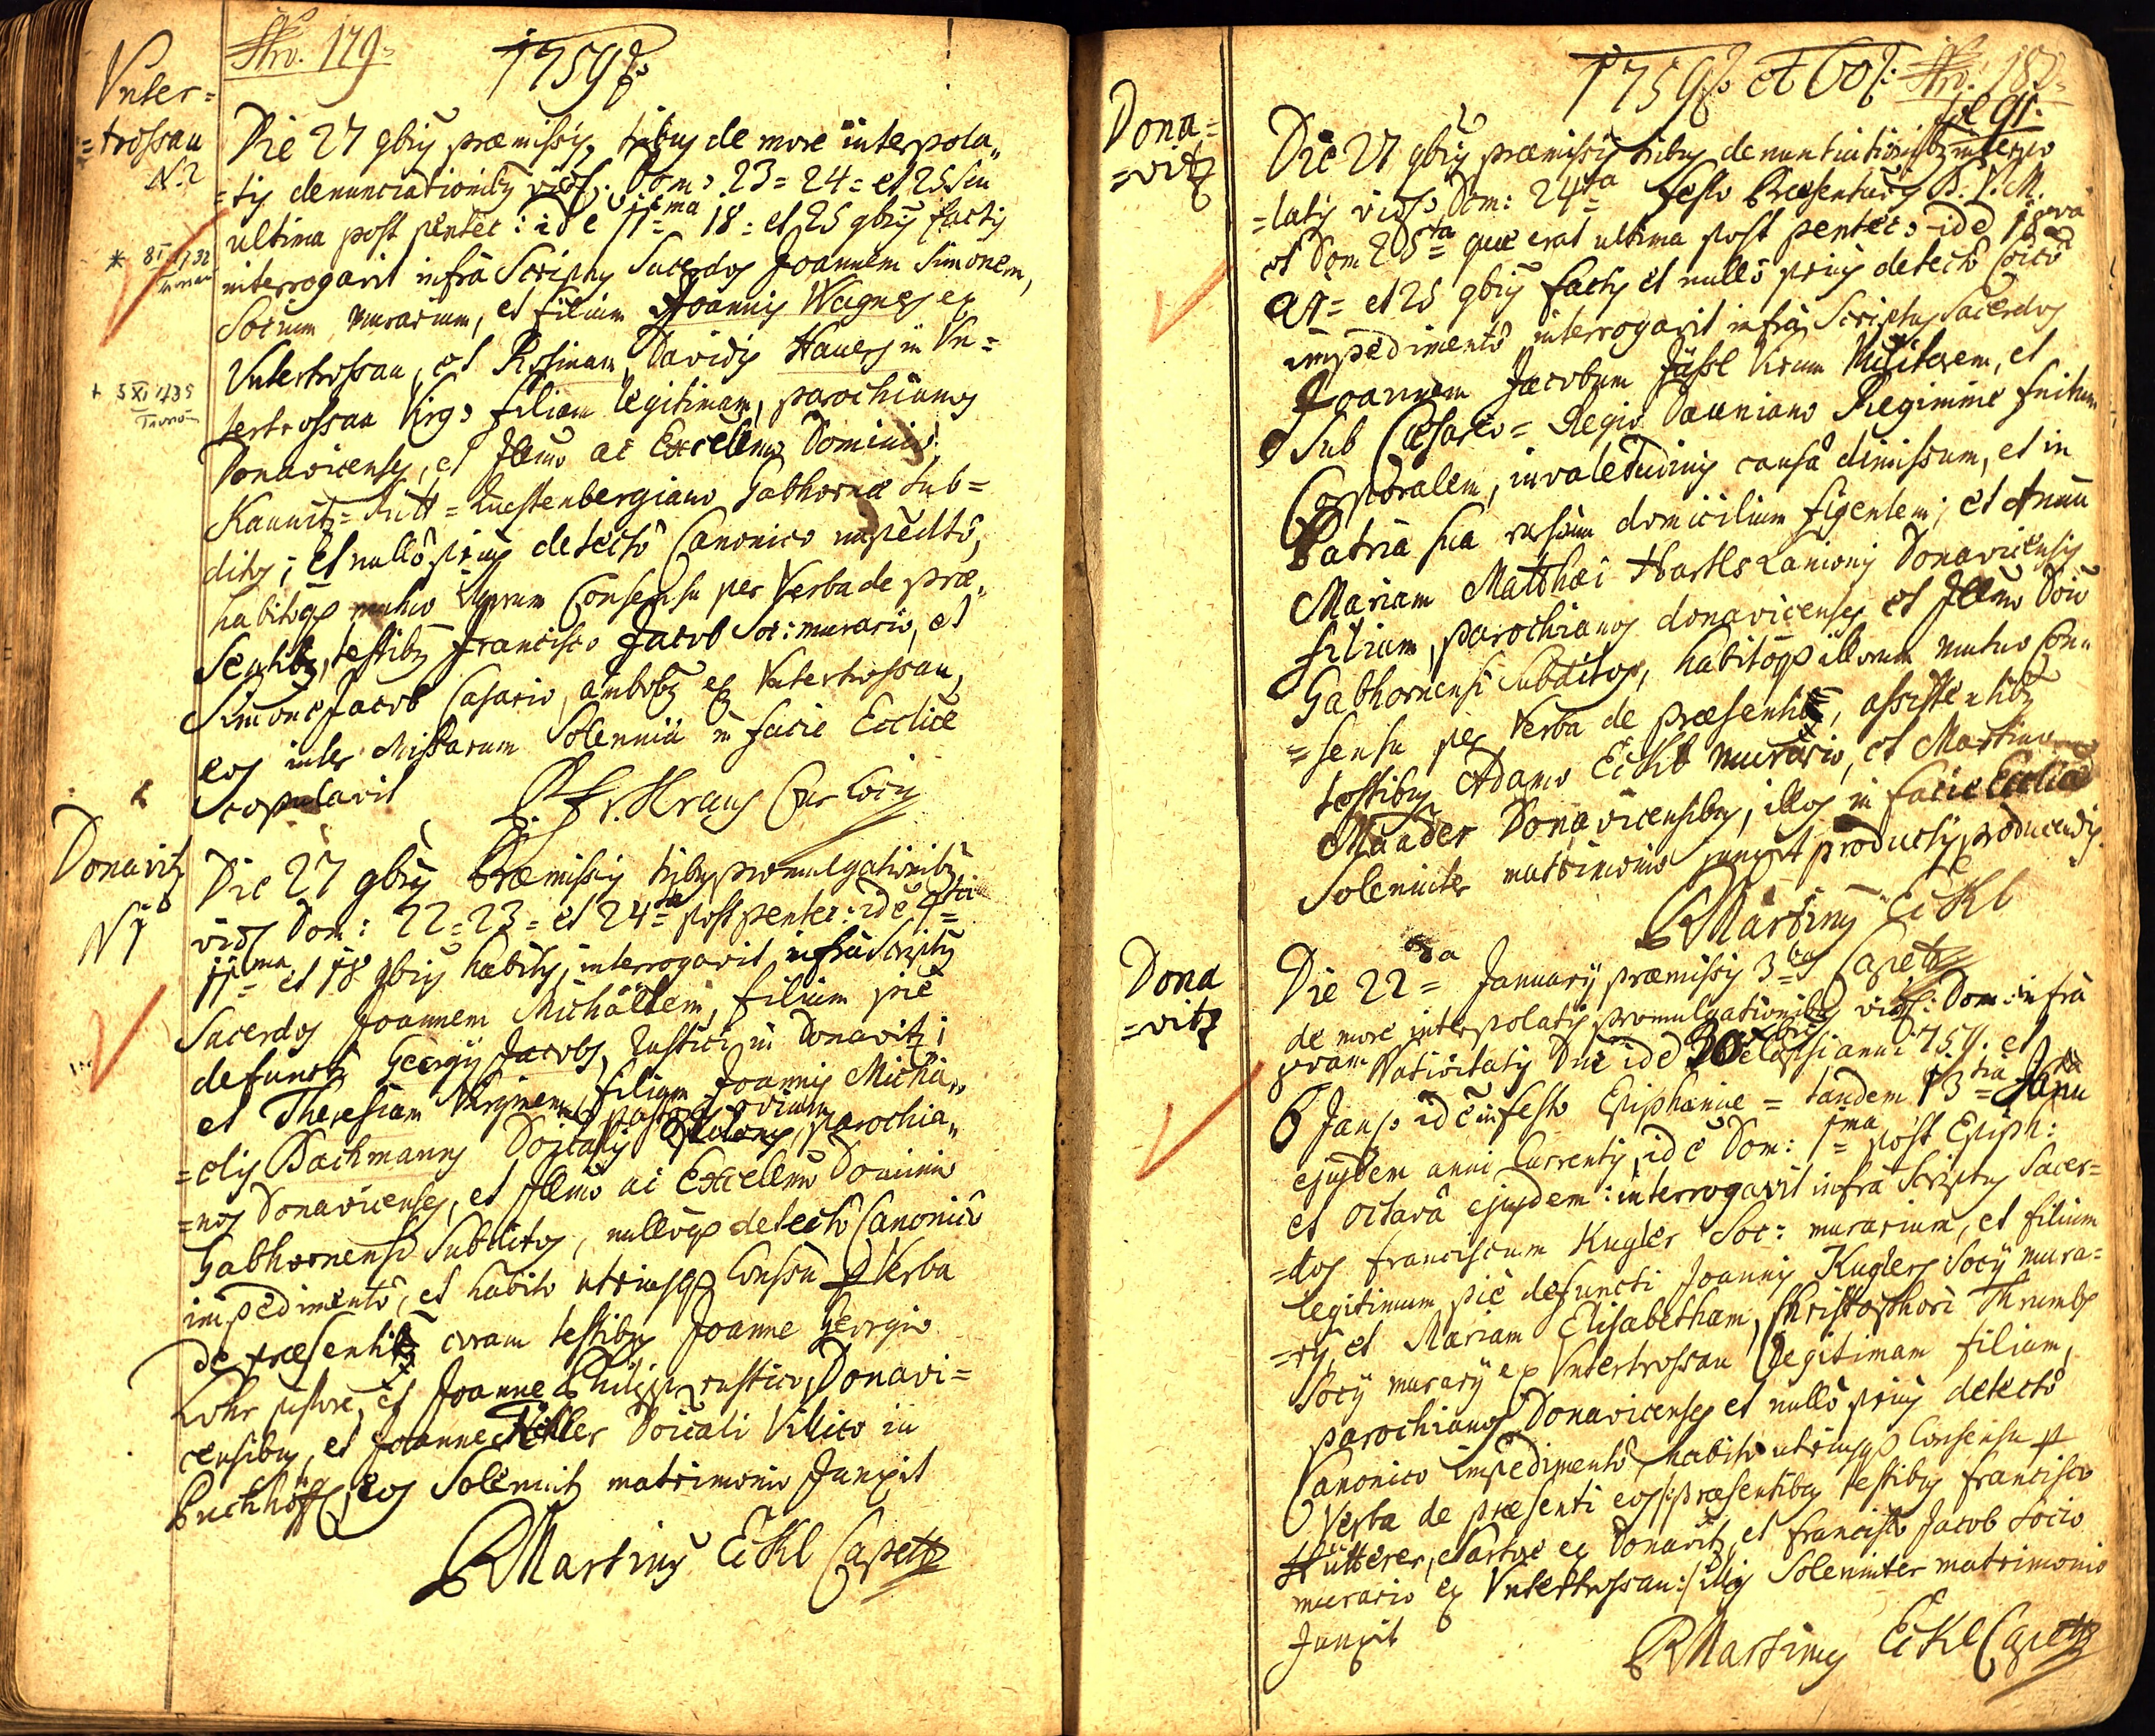 179.
1759
Unter=
=trossau
N. 2
* 8 I 1732
+ 5 XI 1735
Die 27 9bris præmissis, tribus de more interpola„
=tis denunciationibus vids. Dom. 23= 24= et 25 seu
ultima post pentec: id ē 11ma 18= et 25 9bris factis
interrogavit infrà Scriptus Sacerdos Joannem Simonem,
Socium murarium, et filium Joannis Wagners ex
Untertrossau, et Rosinam Davidis Hauers in Un=
tertrossau Virg. filiam legitimam, parochianos
Donavicenses, et Illmo ac Excellmo Dominio
Kaunitz= Ritt= Questenbergiano Gabhornæ sub=
ditos; Et nullô prius detectô Canonico impedtô,
habitoqȝ mutuo illorum Consensu per Verba de præ„
sentibus, testibus Francisco Jacob Soc: murario, et
Simone Jacob Casario, ambobus ex Untertrossau,
eos inter Missarum Solennia in facie Eccliæ
copulavit
P. Fr. Kraus Cur loci
Donavitz
N 1
Die 27 9bris Præmissis tribus promulgationibus
vids Dom: 22= 23= et 24ta post pentec: id ē 4ta
11ma et 18 9bris habitis, interrogavit infrà Scriptus
Sacerdos Joannem Michäelem, filium piè
defuncti Georgÿ Jacobs, Rustici in Donavitz;
et Theresiam Virginem, filiam Joannis Michä„
=elis Bachmanns pastoris ovium, parochia„
=nos Donavicenses, et Illmo ac Excellmo Dominio
Gabhornensi Subditos, nullôqȝ detectô Canonicô
impedimentô, et habito utriusqȝ Consensu p Verba
de præsentibus coram testibus Joanne Georgio
Lohr pistore, et Joanne Philipp rustico, Donavi=
censibus, et Joanne Köhler Villico in
Buchhöff, eos Solemnit matrimonio Junxit
P Martinus Eckl Capell
1759 et 60. 180.
Dona=
=vitz
Die 27 9bris præmissis tribus denuntiationibus interpo
=latis vids. Dom: 24ta festo Præsentatis B. V. M.
et Dom 25ta quæ erat ultima post pentec: id ē 18va
21= et 25 9bris factis et nullô prius detectô Caico
impedimentô interrogavit infrà Scriptus Sacerdos
Joannem Jacobum Jässl Virum Militarem, et
Sub Cæsareo= Regio Dauniano Regimine
Corporalem, invaletudinis causâ dimissum, et in
Patria sua domicilium figentem; et Annam
Mariam Matthæi Hartls Lanionis Donavicensis
filiam, parochianos donavicenses et Illmo Dnio
Gabhornensi Subditos, habitoqȝ illorum mutuo Con„
=sensu per Verba de præsenti, assistentibus
testibus Adamo Eckl murario, et Martino
Maader Donavicensibus, illos in facie Eccliæ
Solemniter matrimonio junxit productis producendis.
P Martinus Eckl
Capell
Dona
=vitz
Die 22da January præmissis 3bus
de more interpolatis promulgationibus vids: Dom: infrà
Octavam Nativitatis Dni id ē 30 Xbris elapsi anni 759. et
6 Jan: id ē in festo Epiphaniæ = tandem 13tia Janu
ejusdem anni Currentis, id ē Dom: 1ma post Epiph:
et octavâ ejusdem: interrogavit infrà Scriptus Sacer=
=dos Franciscum Kugler Soc: murarium, et filium
legitimum piè defuncti Joannis Kuglers Socÿ mura=
=rÿ, et Mariam Elisabetham, Christophori Thrumbs
Socÿ murarÿ ex Untertrossau legitimam filiam,
parochianos Donavicenses et nullô prius detectô
Canonico impedimentô, habito utriusqȝ Consensu p
Verba de præsenti eos /: præsentibus testibus Francisco
Hütterer, Sartore ex Donavitz, et Francisco Jacob Socio
murario ex Untertrossau :/ Solemniter matrimonio
Junxit
P Martinus Eckl Capell